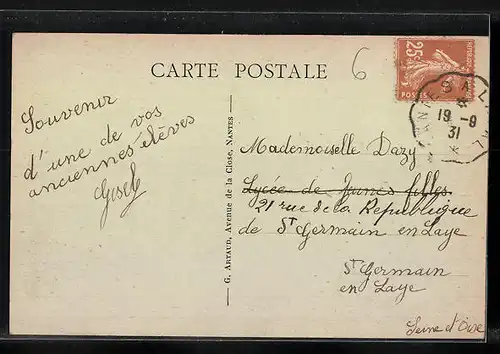 6
CARTE POSTALE
25c
POSTES
19 -9
31
Souvenir
d'une de vos
anciennes élèves
Gisèle
G. ARTAUD, Avenue de la Close, NANTES
Mademoiselle Dazy
Lycée de Jeunes filles
21 rue de la République
de St Germain en Laye
St Germain
en Laye
Seine et Oise